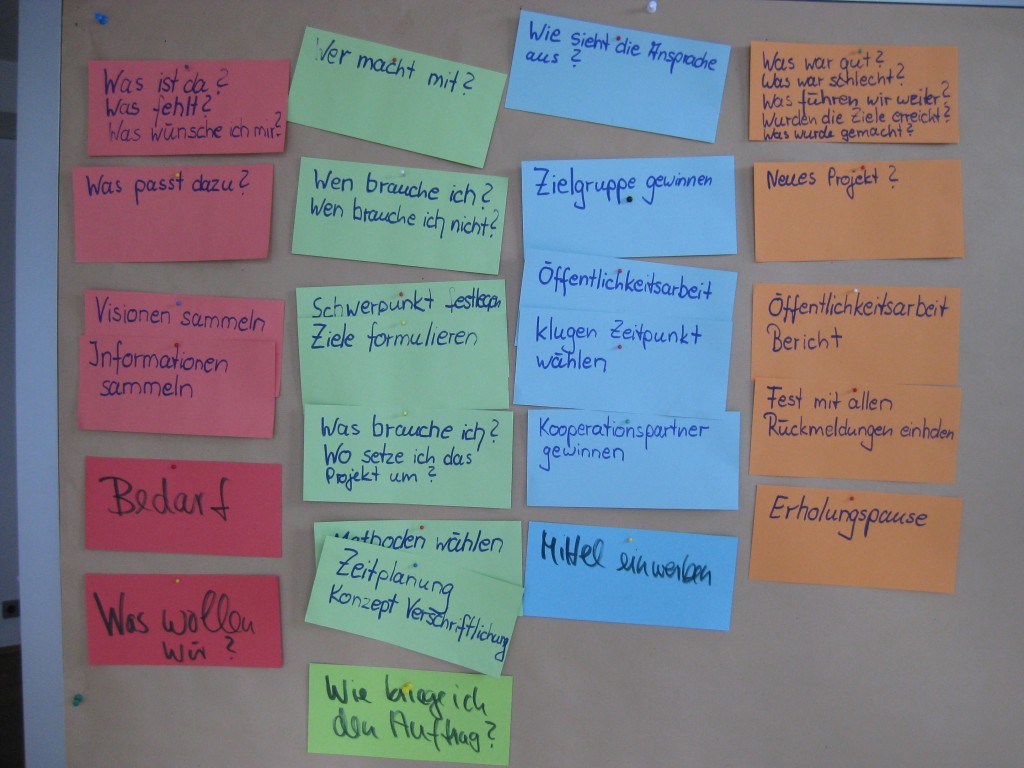 Was ist da?
Was fehlt?
Was wünsche ich mir?
Was passt dazu?
Visionen sammeln
Informationen
sammeln
Bedarf
Was wollen
wir?
Wer macht mit?
Wen brauche ich?
Wen brauche ich nicht?
Schwerpunkt festlegen
Ziele formulieren
Was brauche ich?
Wo setze ich das
Projekt um?
Methoden wählen
Zeitplanung
Konzept Verschriftlichung
Wie kriege ich
den Auftrag?
Wie sieht die Ansprache
aus?
Zielgruppe gewinnen
Öffentlichkeitsarbeit
klugen Zeitpunkt
wählen
Kooperationspartner
gewinnen
Mittel einwerben
Was war gut?
Was war schlecht?
Was führen wir weiter?
Wurden die Ziele erreicht?
Was wurde gemacht?
Neues Projekt?
Öffentlichkeitsarbeit
Bericht
Fest mit allen
Rückmeldungen einholen
Erholungspause